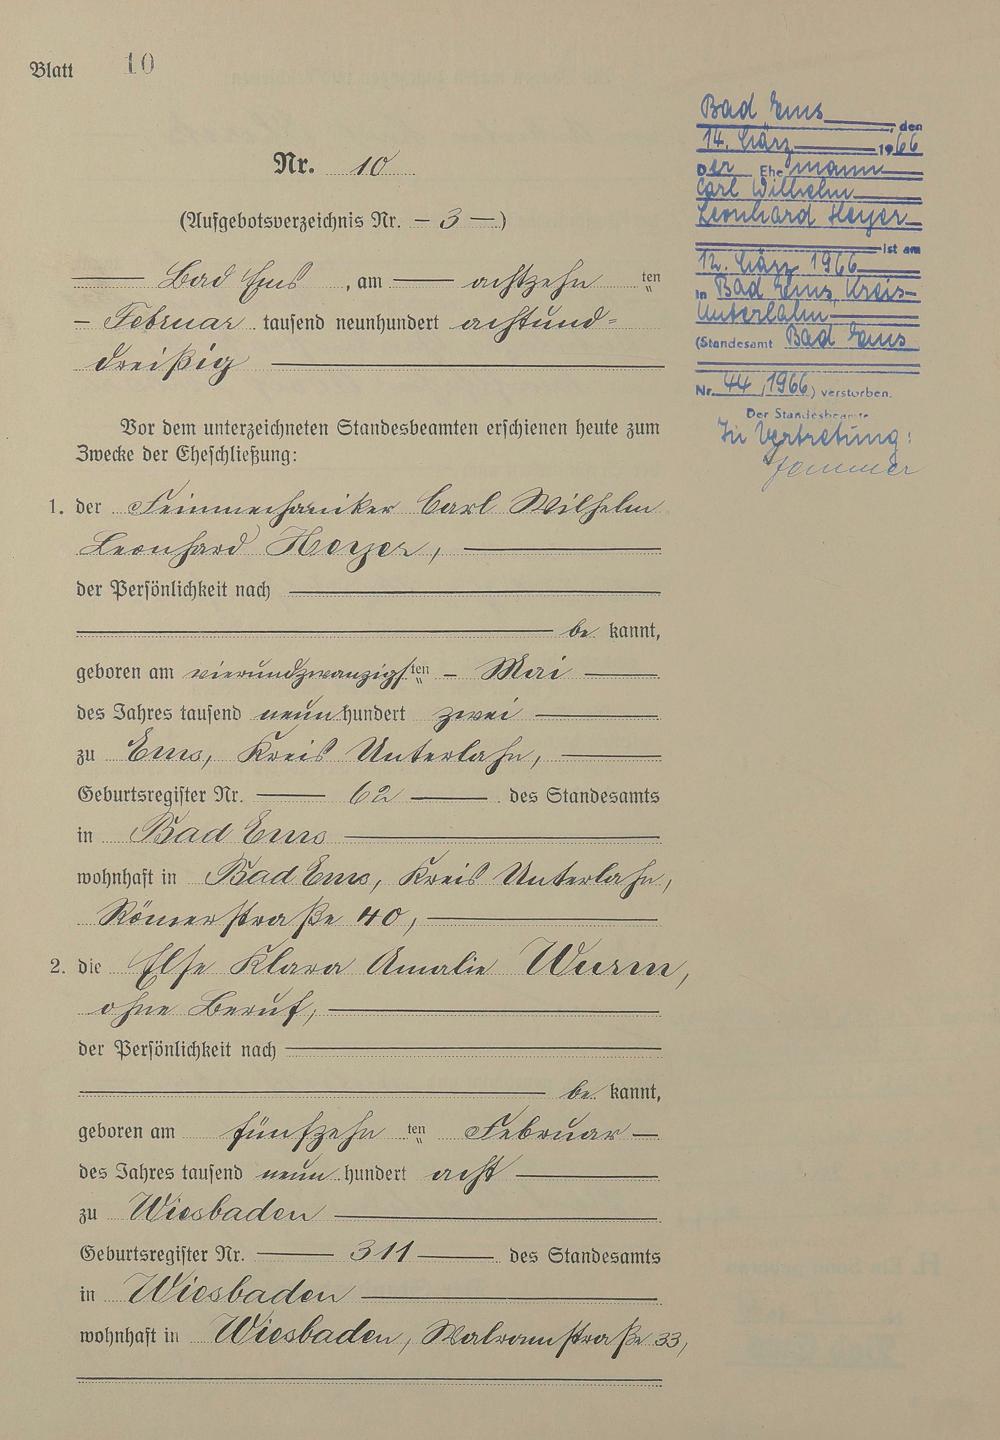 Blatt 10
Nr. 10
(Aufgebotsverzeichnis Nr. — 3 —)
Bad Ems, am achtzehnten
Februar tausend neunhundert achtund-
dreißig
Vor dem unterzeichneten Standesbeamten erschienen heute zum
Zwecke der Eheschließung:
1. der Feinmechaniker Carl Wilhelm
Leonhard Heyer,
der Persönlichkeit nach
be kannt,
geboren am vierundzwanzigsten Mai
des Jahres tausend neun hundert zwei
zu Ems, Kreis Unterlahn,
Geburtsregister Nr. 62 des Standesamts
in Bad Ems
wohnhaft in Bad Ems, Kreis Unterlahn,
Römerstraße 40,
2. die Else Klara Amalie Wurm,
ohne Beruf,
der Persönlichkeit nach
be kannt,
geboren am fünfzehnten Februar
des Jahres tausend neun hundert acht
zu Wiesbaden
Geburtsregister Nr. 311 des Standesamts
in Wiesbaden
wohnhaft in Wiesbaden, Walramstraße 33,
Bad Ems, den
14. März 1966
Der Ehemann
Carl Wilhelm
Leonhard Heyer
ist am
12. März 1966
in Bad Ems, Kreis
Unterlahn
(Standesamt Bad Ems
Nr. 44/1966) verstorben.
Der Standesbeamte
In Vertretung: